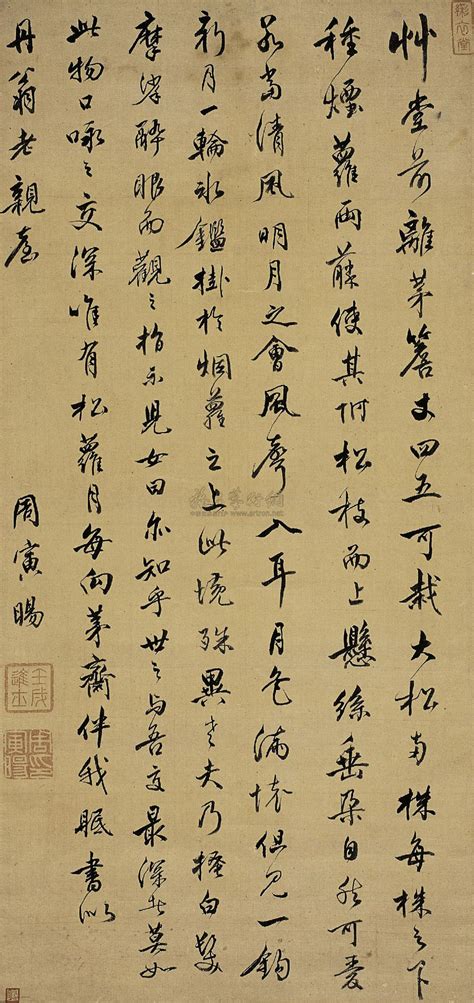 艸堂前離茅簷丈四五可栽大松兩株每株之下
種煙蘿兩藤使其附松枝而上懸絲垂朶自然可愛
每當清風明月之會風聲入耳月色滿懷但見一鈎
新月一輪冰鑑掛於烟蘿之上此境殊異老夫乃搔白髮
摩挲醉眼而觀之指示兒女曰尔知乎世之与吾交最深者莫如
此物口號之交深唯有松蘿月每向茅齋伴我眠書似
丹翁老親臺
周寅暘